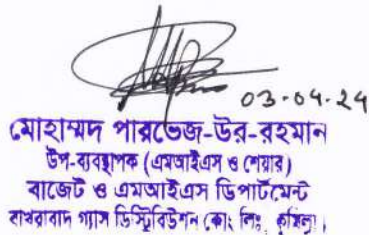 03-04-24
মোহাম্মদ পারভেজ-উর-রহমান
উপ-ব্যবস্থাপক (এমআইএস ও শেয়ার)
বাজেট ও এমআইএস ডিপার্টমেন্ট
বাখরাবাদ গ্যাস ডিস্ট্রিবিউশন কোং লিঃ, কুমিল্লা।